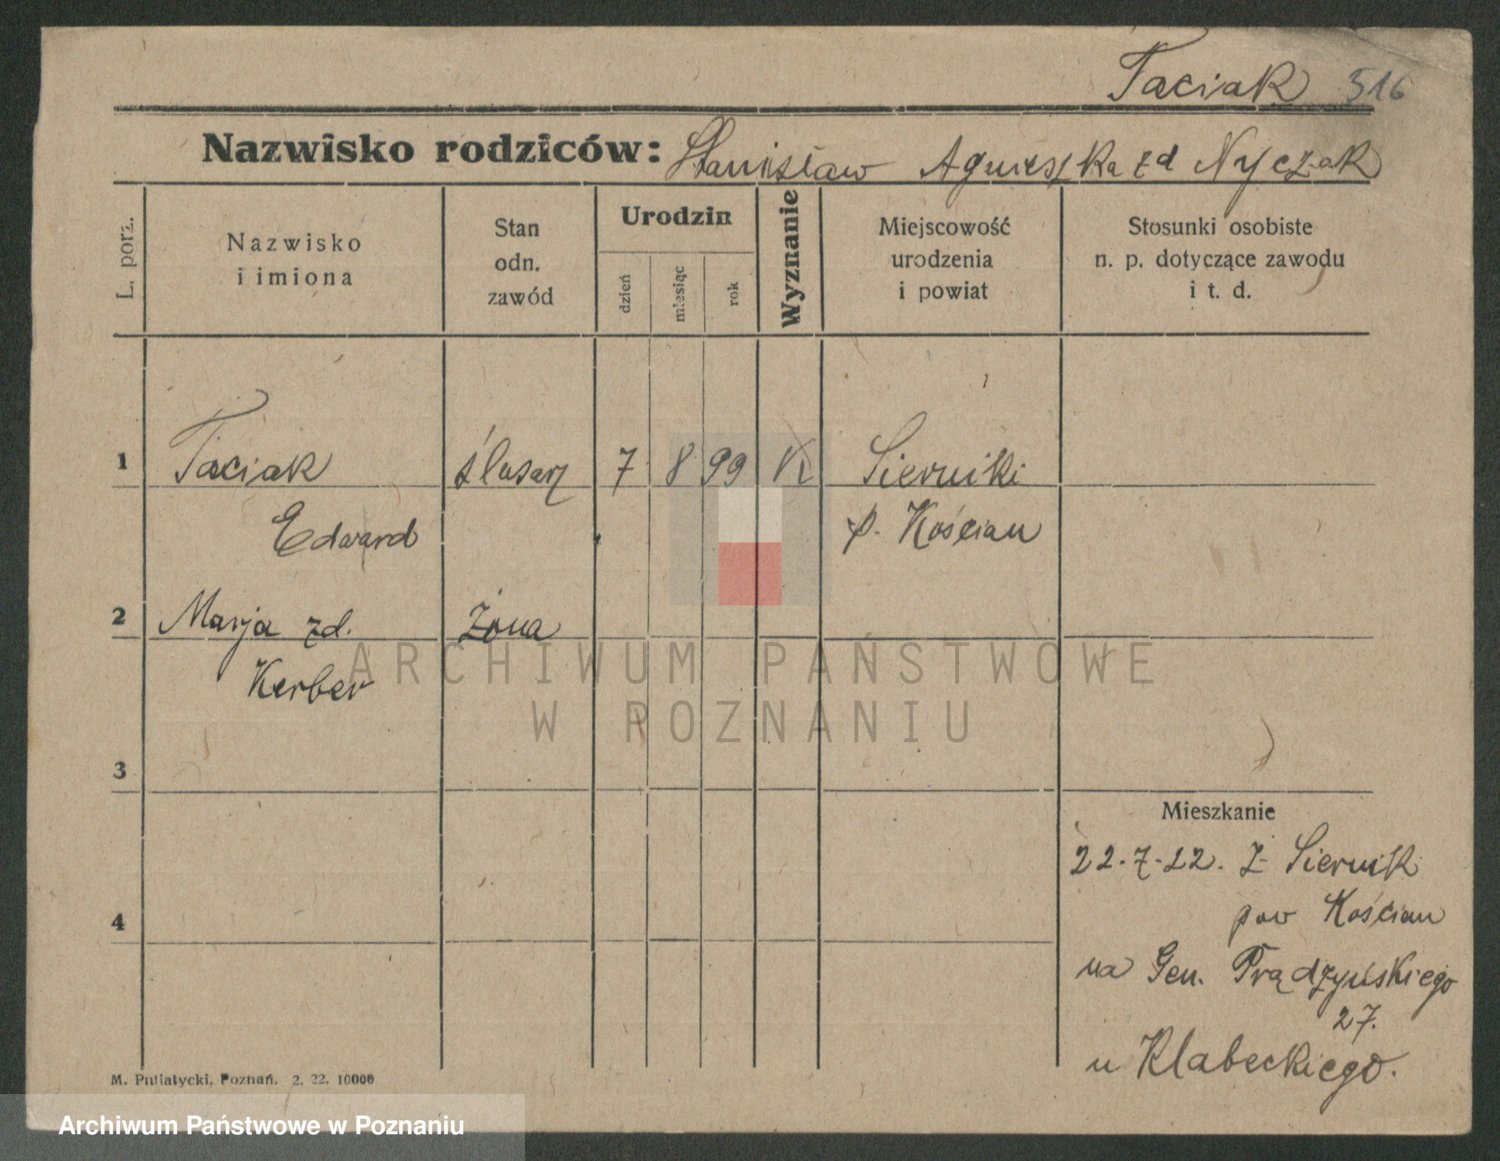 Taciak 516
Nazwisko rodziców: Stanisław Agnieszka zd Nyczak
L. porz.
Nazwisko
i imiona
Stan
odn.
zawód
Urodzin
dzień
miesiąc
rok
Wyznanie
Miejscowość
urodzenia
i powiat
Stosunki osobiste
n. p. dotyczące zawodu
i t. d.
1 Taciak ślusarz 7 8 99 K Sierniki
Edward p. Kościan
2 Marja zd. Żona
Kerber
ARCHIWUM PAŃSTWOWE
W POZNANIU
3
Mieszkanie
22.7.22. Z Siernik
pow Kościan
4
na Gen. Prądzyńskiego
27.
u Klabeckiego.
M. Putiatycki, Poznań. 2. 22. 10000
Archiwum Państwowe w Poznaniu